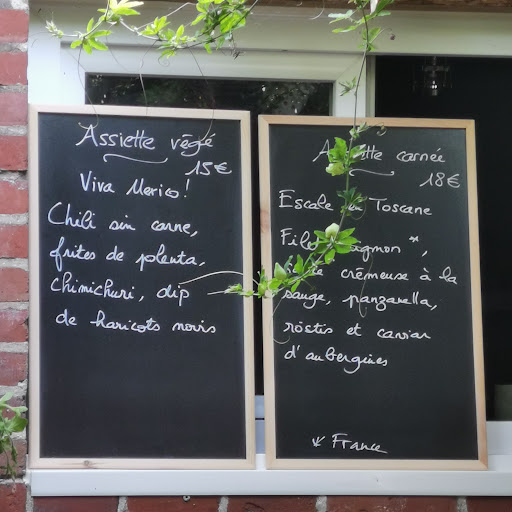 Assiette végé
15€
Viva Mexico!
Chili sin carne,
frites de polenta,
chimichuri, dip
de haricots noirs
carnée
18€
Escale en Toscane
mignon *,
crèmeuse à la
sauge, panzanella,
röstis et caviar
d'aubergines
* France